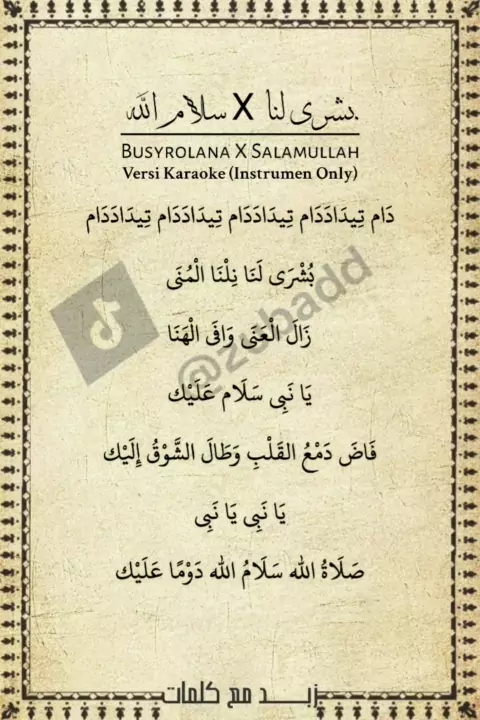 بشرى لنا X سلام الله
BUSYROLANA X SALAMULLAH
Versi Karaoke (Instrumen Only)
دَام تِيدَادَدَام تِيدَادَدَام تِيدَادَدَام تِيدَادَدَام
بُشْرَى لَنَا نِلْنَا الْمُنَى
زَالَ الْعَنَى وَافَى الْهَنَا
يَا نَبِى سَلَام عَلَيْك
فَاضَ دَمْعُ القَلْبِ وَطَالَ الشَّوْقُ إِلَيْك
يَا نَبِى يَا نَبِى
صَلَاةُ الله سَلَامُ الله دَوْمًا عَلَيْك
@zubadd
زبد مع كلمات